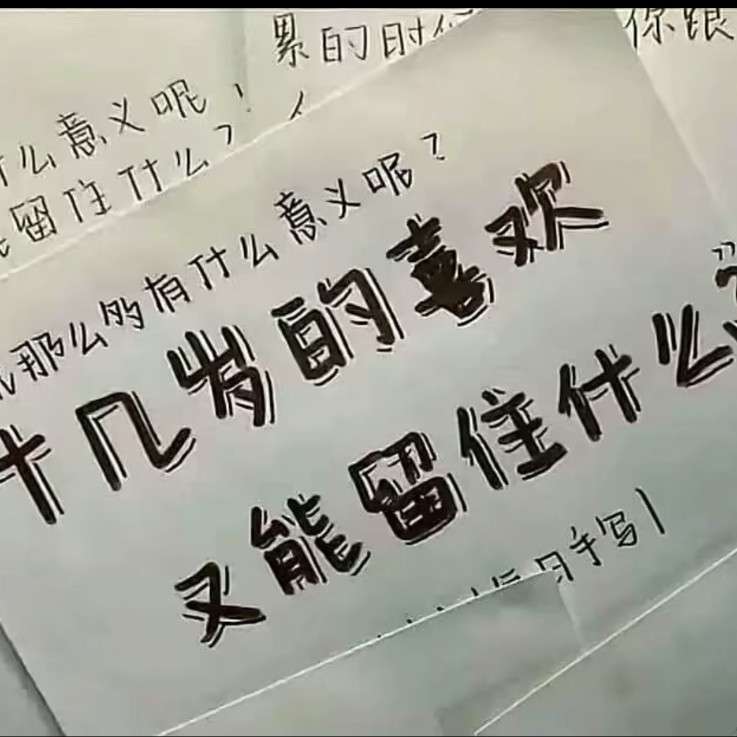 累的时
你跟
什么意义呢？
能留住什么？
那么的有什么意义呢？
十几岁的喜欢
又能留住什么
每日手写